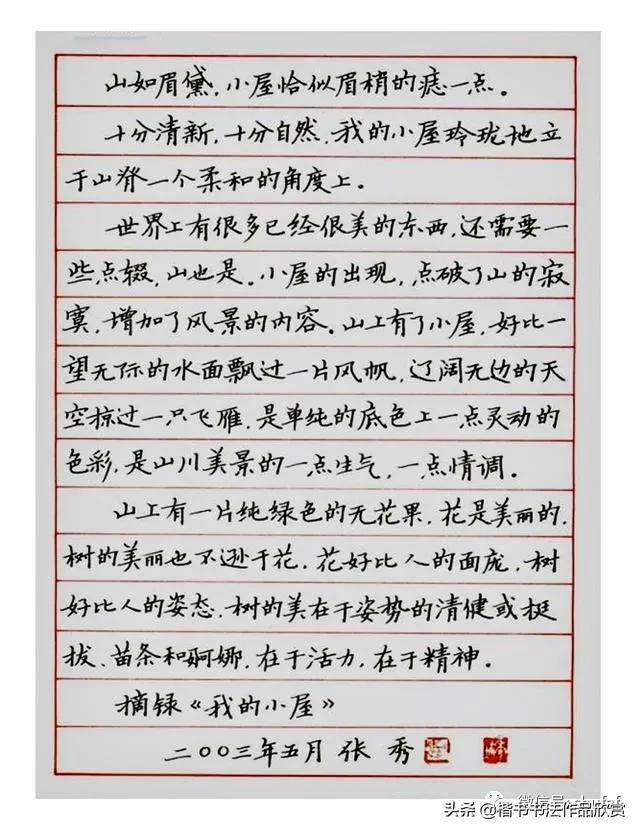 山如眉黛,小屋恰似眉梢的痣一点。
十分清新,十分自然,我的小屋玲珑地立
于山脊一个柔和的角度上。
世界上有很多已经很美的东西,还需要一
些点缀,山也是。小屋的出现,点破了山的寂
寞,增加了风景的内容。山上有了小屋,好比一
望无际的水面飘过一片风帆,辽阔无边的天
空掠过一只飞雁,是单纯的底色上一点灵动的
色彩,是山川美景的一点生气,一点情调。
山上有一片纯绿色的无花果,花是美丽的,
树的美丽也不逊于花。花好比人的面庞,树
好比人的姿态,树的美在于姿势的清健或挺
拔、苗条和婀娜,在于活力,在于精神。
摘录《我的小屋》
二〇〇三年五月 张 秀
头条@楷书书法作品欣赏